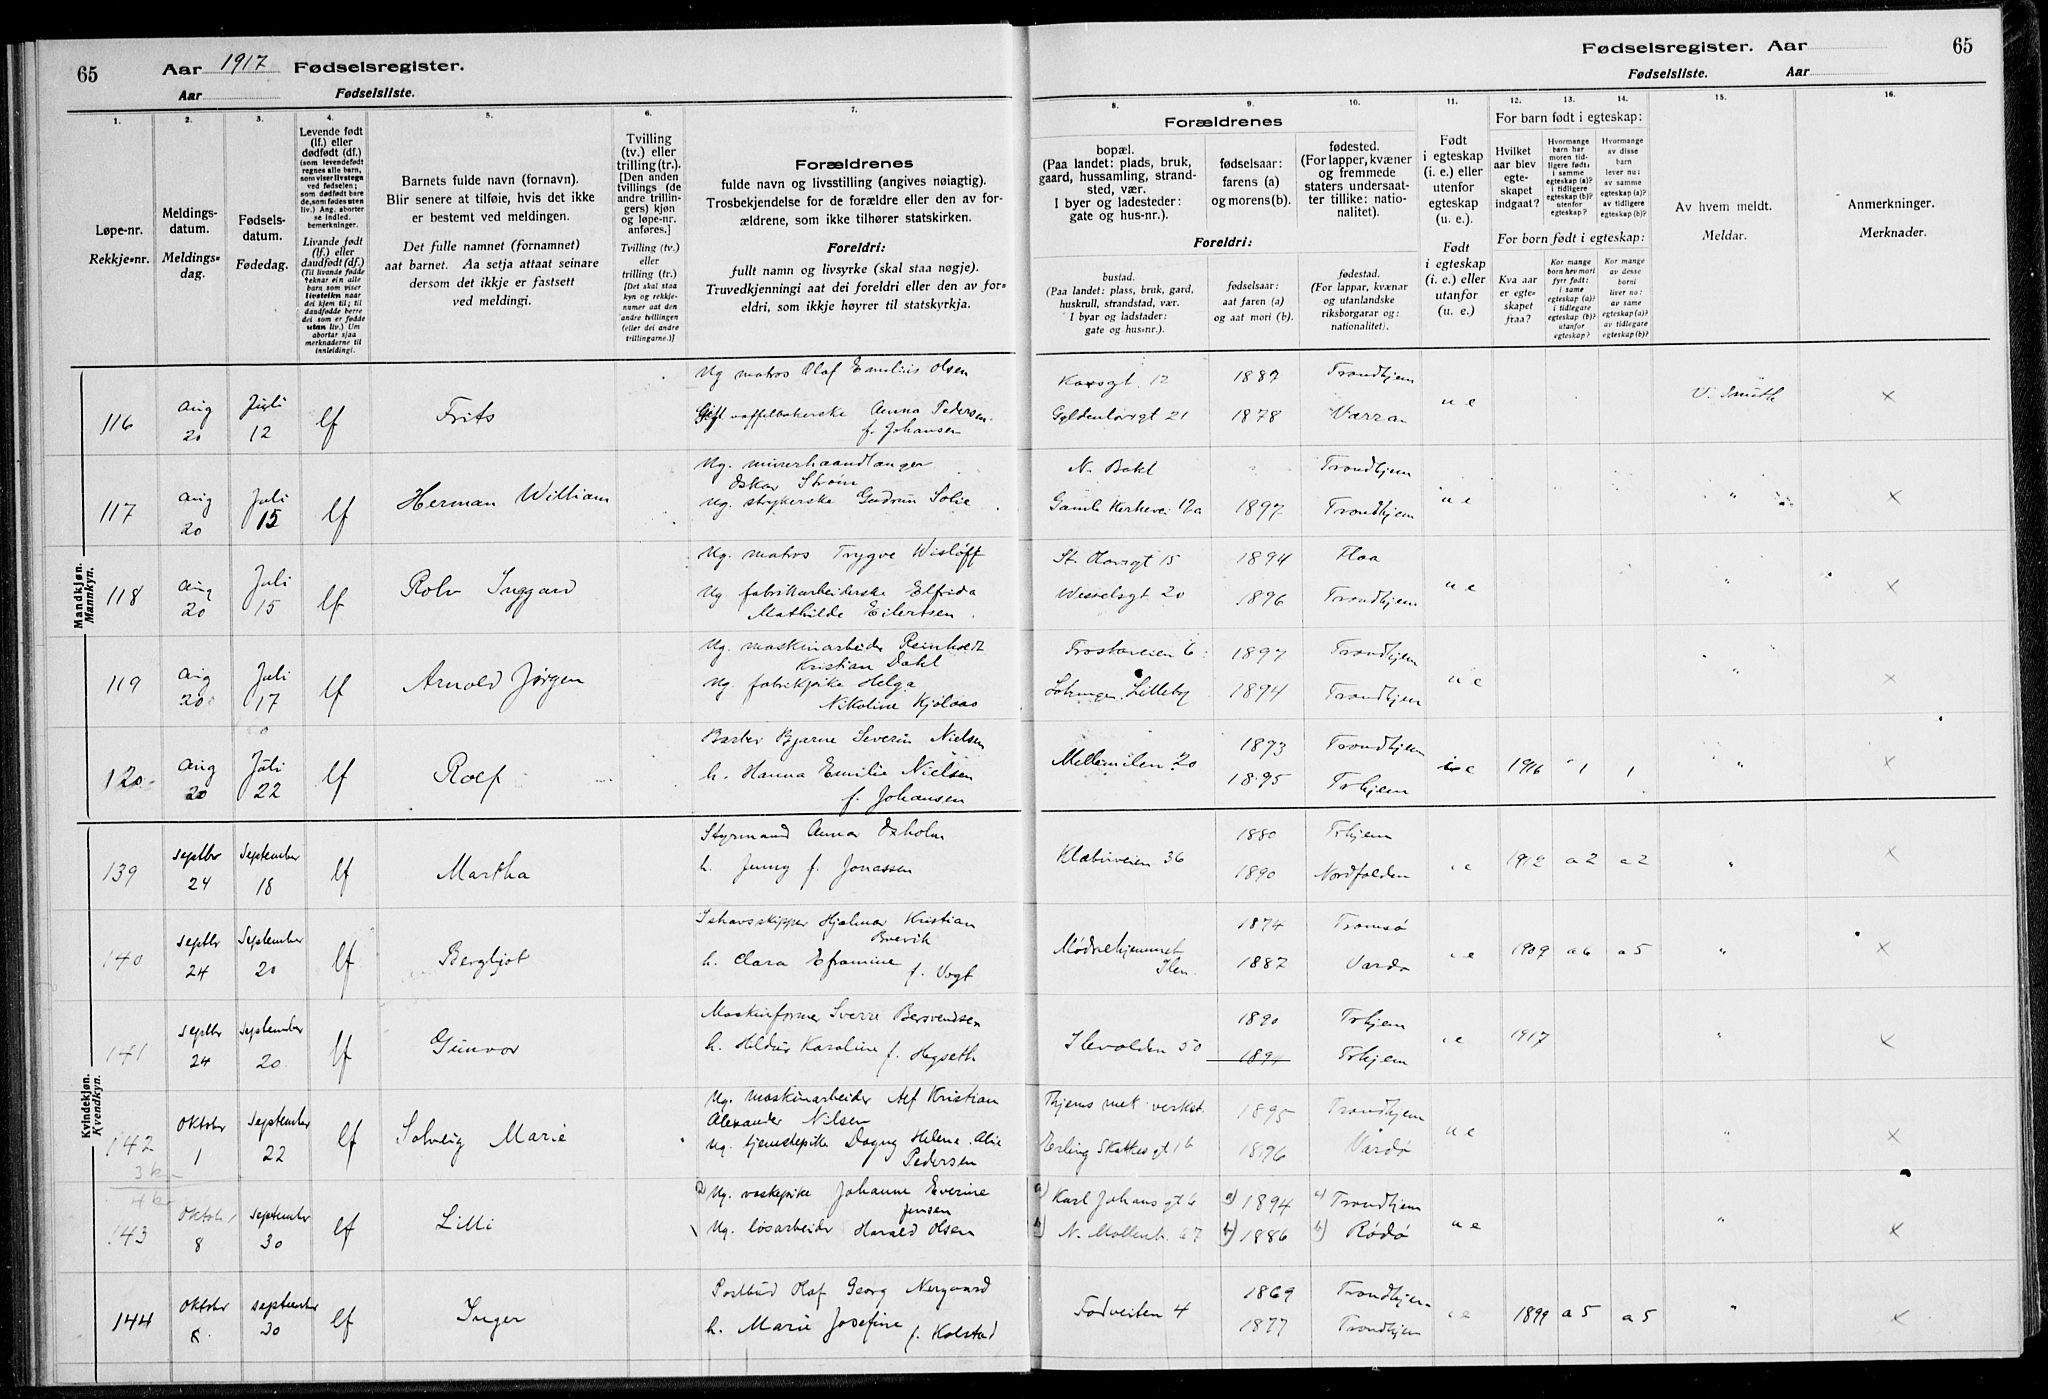 65
Aar 1917 Fødselsregister.
Aar Fødselsliste.
Fødselsregister. Aar
65
Fødselsliste. Aar
1.
2.
3.
4.
5.
6.
7.
8.
9.
10.
11.
12.
13.
14.
15.
16.
Løpe-nr.
Rekkje-nr.
Meldings-
datum.
Meldings-
dag.
Fødsels-
datum.
Fødedag.
Levende født
(lf.) eller
dødfødt (df.)
(som levendefødt
regnes alle barn,
som viser livstegn
ved fødselen;
som dødfødt bare
de, som fødes uten
liv.) Ang. aborter
se indled.
bemerkninger.
Livande født
(lf.) eller
daudfødt (df.)
(Til livande fødde
reknar ein alle
barn som viser
livsteikn naar
dei kjem til; til
daudfødde berre
dei som er fødde
utan liv.) Um
abortar sjaa
merknaderne til
innleidingi.
Barnets fulde navn (fornavn).
Blir senere at tilføie, hvis det ikke
er bestemt ved meldingen.
Det fulle namnet (fornamnet)
aat barnet. Aa setja attaat seinare
dersom det ikkje er fastsett
ved meldingi.
Tvilling
(tv.) eller
trilling (tr.).
[Den anden
tvillings (de
andre trillin-
gers) kjøn
og løpe-nr.
anføres.]
Tvilling (tv.)
eller
trilling (tr.)
[Det skal staa
kyn og rekkje-
numer aat den
andre tvillingen
(eller dei andre
trillingarne.)]
Forældrenes
fulde navn og livsstilling (angives nøiagtig).
Trosbekjendelse for de forældre eller den av for-
ældrene, som ikke tilhører statskirken.
Foreldri:
fullt namn og livsyrke (skal staa nøgje).
Truvedkjenningi aat dei foreldri eller den av for-
eldri, som ikkje høyrer til statskyrkja.
Forældrenes
bopæl.
(Paa landet: plads, bruk,
gaard, hussamling, strand-
sted, vær.
I byer og ladesteder:
gate og hus-nr.).
fødselsaar:
farens (a)
og morens (b).
fødested.
(For lapper, kvæner
og fremmede
staters undersaat-
ter tillike: natio-
nalitet).
Foreldri:
bustad.
(Paa landet: plass, bruk, gard,
huskrull, strandstad, vær.
I byar og ladstader:
gate og hus-nr.).
fødselsaar:
aat faren (a)
og aat mori (b).
fødestad.
(For lappar, kvænar
og utanlandske
riksborgarar og:
nationalitet).
Født
i egteskap
(i. e.) eller
utenfor
egteskap
(u. e.)
Født
i egteskap
(i. e.) eller
utanfor
egteskap
(u. e.)
For barn født i egteskap:
Hvilket
aar blev
egte-
skapet
indgaat?
Hvormange
barn har
moren tid-
ligere født:
i samme
egteskap (a)?
i tidligere
egteskap (b)?
utenfor
egteskap?
Hvormange
av disse
barn
lever nu:
av samme
egteskap (a)?
av tidligere
egteskap (b)?
For born født i egteskap:
Kva aar
er egte-
skapet
fraa?
Kor mange
born hev mori
fyrr født:
i same
egteskap (a)?
i tidlegare
egteskap (b)?
utanfor
egteskap?
Kor mange
av desse
borni
liver no:
av same
egteskap (a)?
av tidlegare
egteskap (b)?
Av hvem meldt.
Meldar.
Anmerkninger.
Merknader.
Mandkjøn.
Mannkyn.
116 Aug 20 Juli 12 lf Frits
Ug matros Olaf Emilius Olsen
Gift vaffelbakerske Anna Pedersen
f. Johansen
12 1887 Trondhjem
Gyldenløvsgt 21 1878 Værran
u e V. Smith ×
117 Aug 20 Juli 15 lf Herman William
Ug. murerhaandlanger
Oskar Strøm
Ug. strykerske Gudrun Solie
N. Bakl " Trondhjem
Gamle Kirkevei 12a 1897 Trondhjem
u e " ×
118 Aug 20 Juli 15 lf Rolv Inggard
Ug. matros Trygve Wisløff
Ug fabrikarbeiderske Elfrida
Mathilde Eilertsen
St. Olavsgt 15 1894 Flaa
Wesselsgt 20 1896 Trondhjem
u e " ×
119 Aug 20 Juli 17 lf Arnold Jørgen
Ug. maskinarbeider Reinholdt
Kristian Dahl
Ug. fabrikpike Helga
Nikoline Kjølaas
Frostaveien 6 1897 Trondhjem
Lilleby 1894 Trondhjem
u e " ×
120 Aug 20 Juli 22 lf Rolf
Barber Bjarne Severin Nielsen
h. Hanna Emilie Nielsen
f. Johansen
Mellemilen 20 1893 Trondhjem
1895 Trhjem
i e 1916 1 1 " ×
Kvindekjøn.
Kvendkyn.
139 Septbr 24 September 18 lf Martha
Styrmand Annar Oxholm
h. Jenny f. Jonassen
Klæbuveien 36 1880 Trhjem
1890 Nordfolden
i e 1912 a 2 a 2 " ×
140 Septbr 24 September 20 lf Bergljot
Ishavsskipper Hjalmar Kristian
Brevik
h. Clara Eframine f. Vogt
Mødrehjemmet 1874 Tromsø
Ilen. 1887 Vardø
i e 1909 a 6 a 5 " ×
141 Septbr 24 September 20. lf Gunvor
Maskinformer Sverre Bersvendsen
h. Hildur Karoline f. Hegseth
Ilevolden 50 1890 Trhjem
1891 Trhjem
i e 1917 " ×
142 Oktober 1 September 22 lf Solveig Marie
Ug. maskinarbeider Alf Kristian
Alexander Nilsen
Ug. tjenestepike Dagny Helene Alie
Pedersen
Thjems mek. verkst. 1895 Trondhjem
Erling Skakkesgt 16 1896 Vardø
u e " ×
3 k
4 k
143 Oktober 8 September 30 lf Lilli
a) Ug. vaskepike Johanne Everine
Jensen
Ug. løsarbeider Harald Olsen
a) Karl Johans gt 6 a) 1894 a) Trondhjem
b) N. Møllenb. 67 b) 1886 b) Rødø
u e " ×
144 Oktober 8 September 30 lf Inger
Postbud Olaf Georg Nergaard
h. Marie Josefine f. Kolstad
Fadveiten 4 1869 Trondhjem
1877 Trondhjem
i e 1899 a 5 a 5 " ×